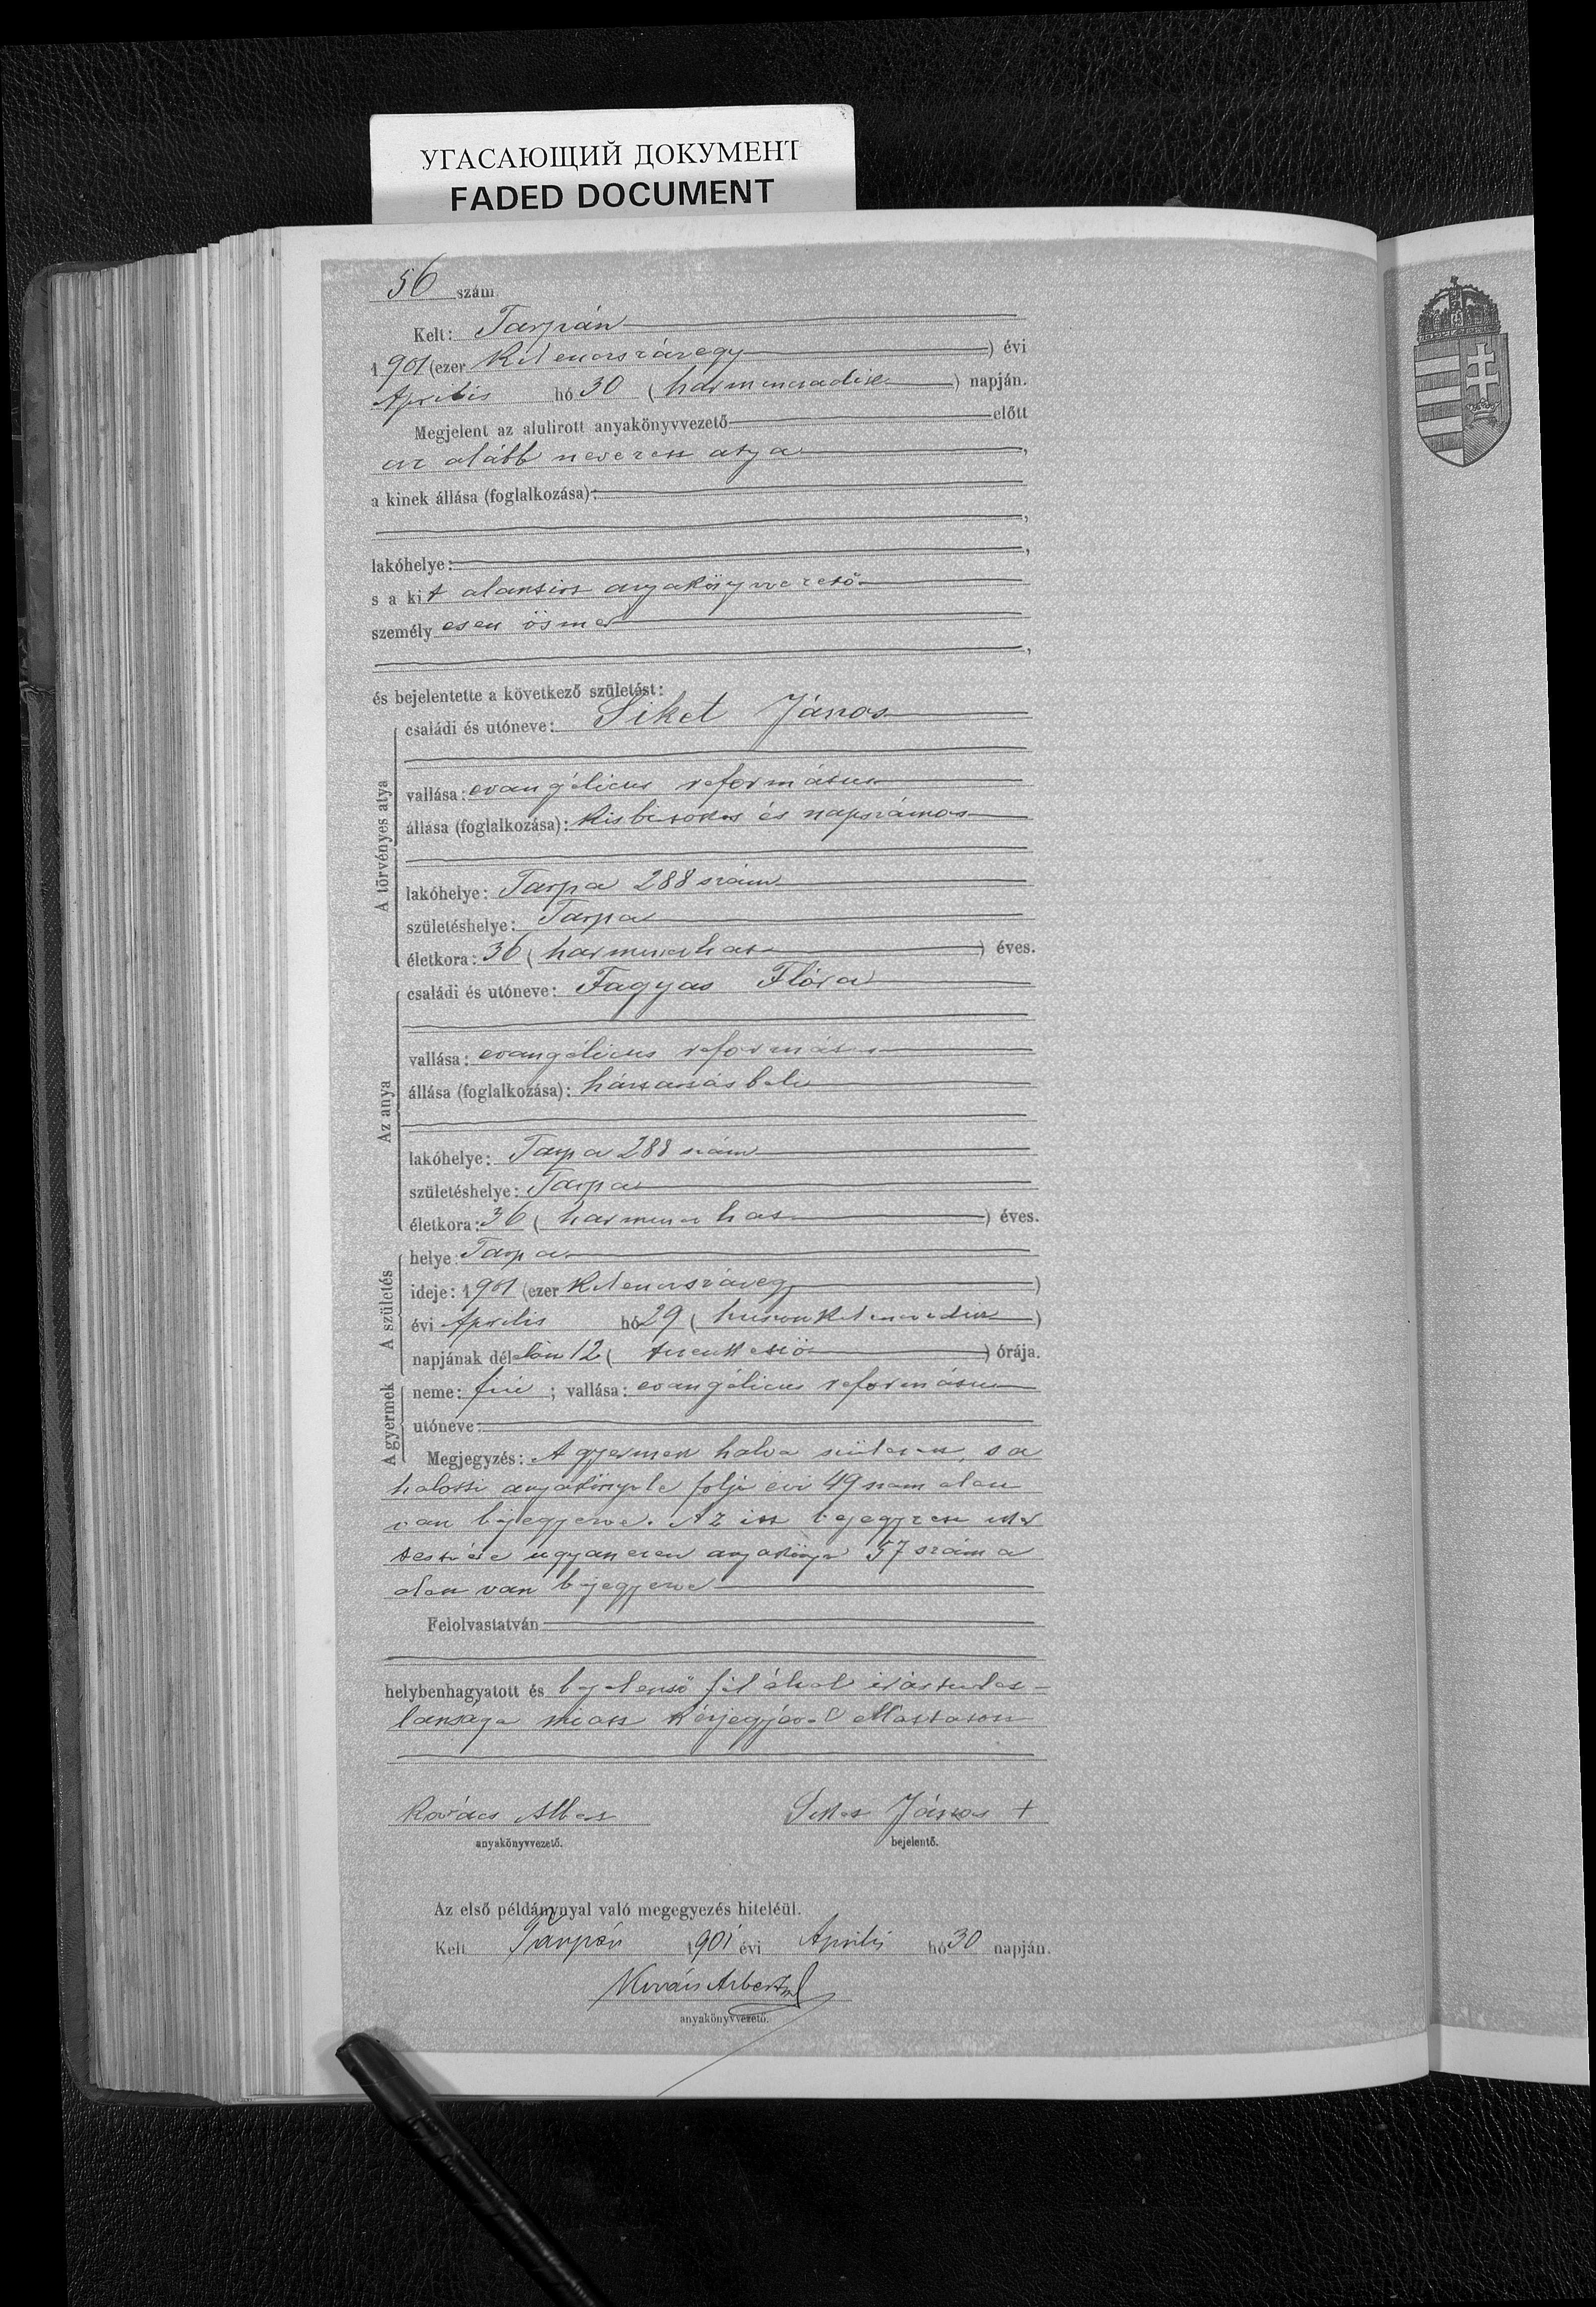 УГАСАЮЩИЙ ДОКУМЕНТ
FADED DOCUMENT
56 szám.
Kelt: Tarpán
1901 (ezer kilencszázegy) évi
Április hó 30 (harmincadik) napján.
Megjelent az alulirott anyakönyvvezető előtt
az alább nevezett atya,
a kinek állása (foglalkozása):
lakóhelye:
s a kit alantirt anyakönyvvezető
személyesen ösmer
és bejelentette a következő születést:
A törvényes atya
családi és utóneve: Siket János
vallása: evangélicus református
állása (foglalkozása): kisbirtokos és napszámos
lakóhelye: Tarpa 288 szám
születéshelye: Tarpa
életkora: 36 (harminchat) éves.
Az anya
családi és utóneve: Fagyas Flóra
vallása: evangélicus református
állása (foglalkozása): háztartásbeli
lakóhelye: Tarpa 288 szám
születéshelye: Tarpa
életkora: 36 (harminchat) éves.
A születés
helye: Tarpa
ideje: 1901 (ezer kilencszázegy)
évi Április hó 29 (huszonkilencedik)
napjának délelőtt 12 (tizenkettő) órája.
A gyermek
neme: fiú; vallása: evangélicus református
utóneve:
Megjegyzés: A gyermek halva született, s a
halotti anyakönyvbe folyó évi 49 szám alatt
van bejegyezve. Az itt bejegyzett iker
testvére ugyanezen anyakönyv 57 szám a
alatt van bejegyezve
Felolvastatván
helybenhagyatott és bejelentő fél által irástudat-
lansága miatt kézjegyével elláttatott
Kovács Albert
anyakönyvvezető.
Siket János +
bejelentő.
Az első példánynyal való megegyezés hiteléül.
Kelt Tarpán 1901 évi Április hó 30 napján.
Kovács Albert
anyakönyvvezető.